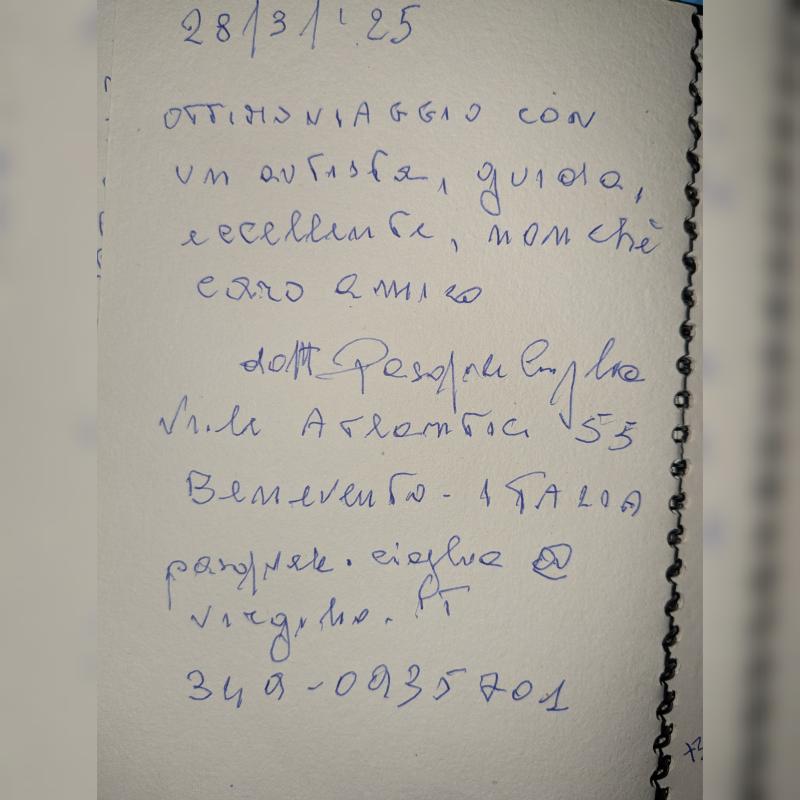 28/3/'25
OTTIMO VIAGGIO CON
un autista, guida,
eccellente, nonchè
caro amico
dott. Pasquale
V.le Atlantici 55
Benevento - ITALIA
virgilio.it
349-0935701